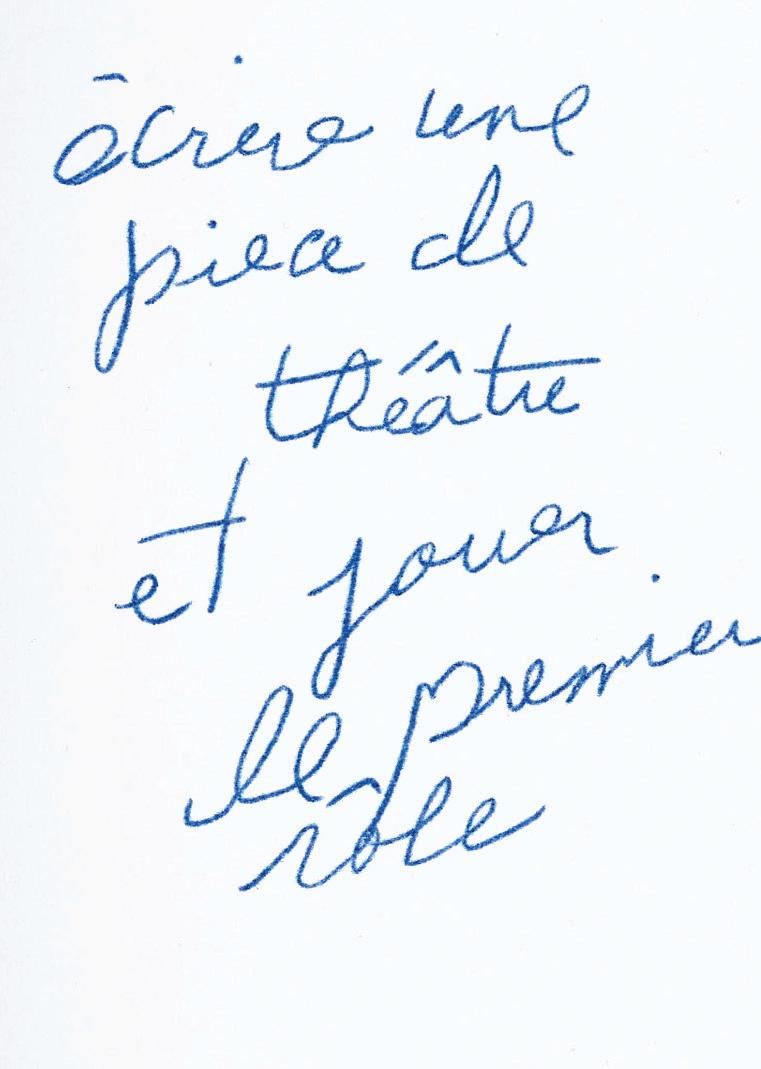 écrire une
piece de
théâtre
et jouer
le premier
rôle